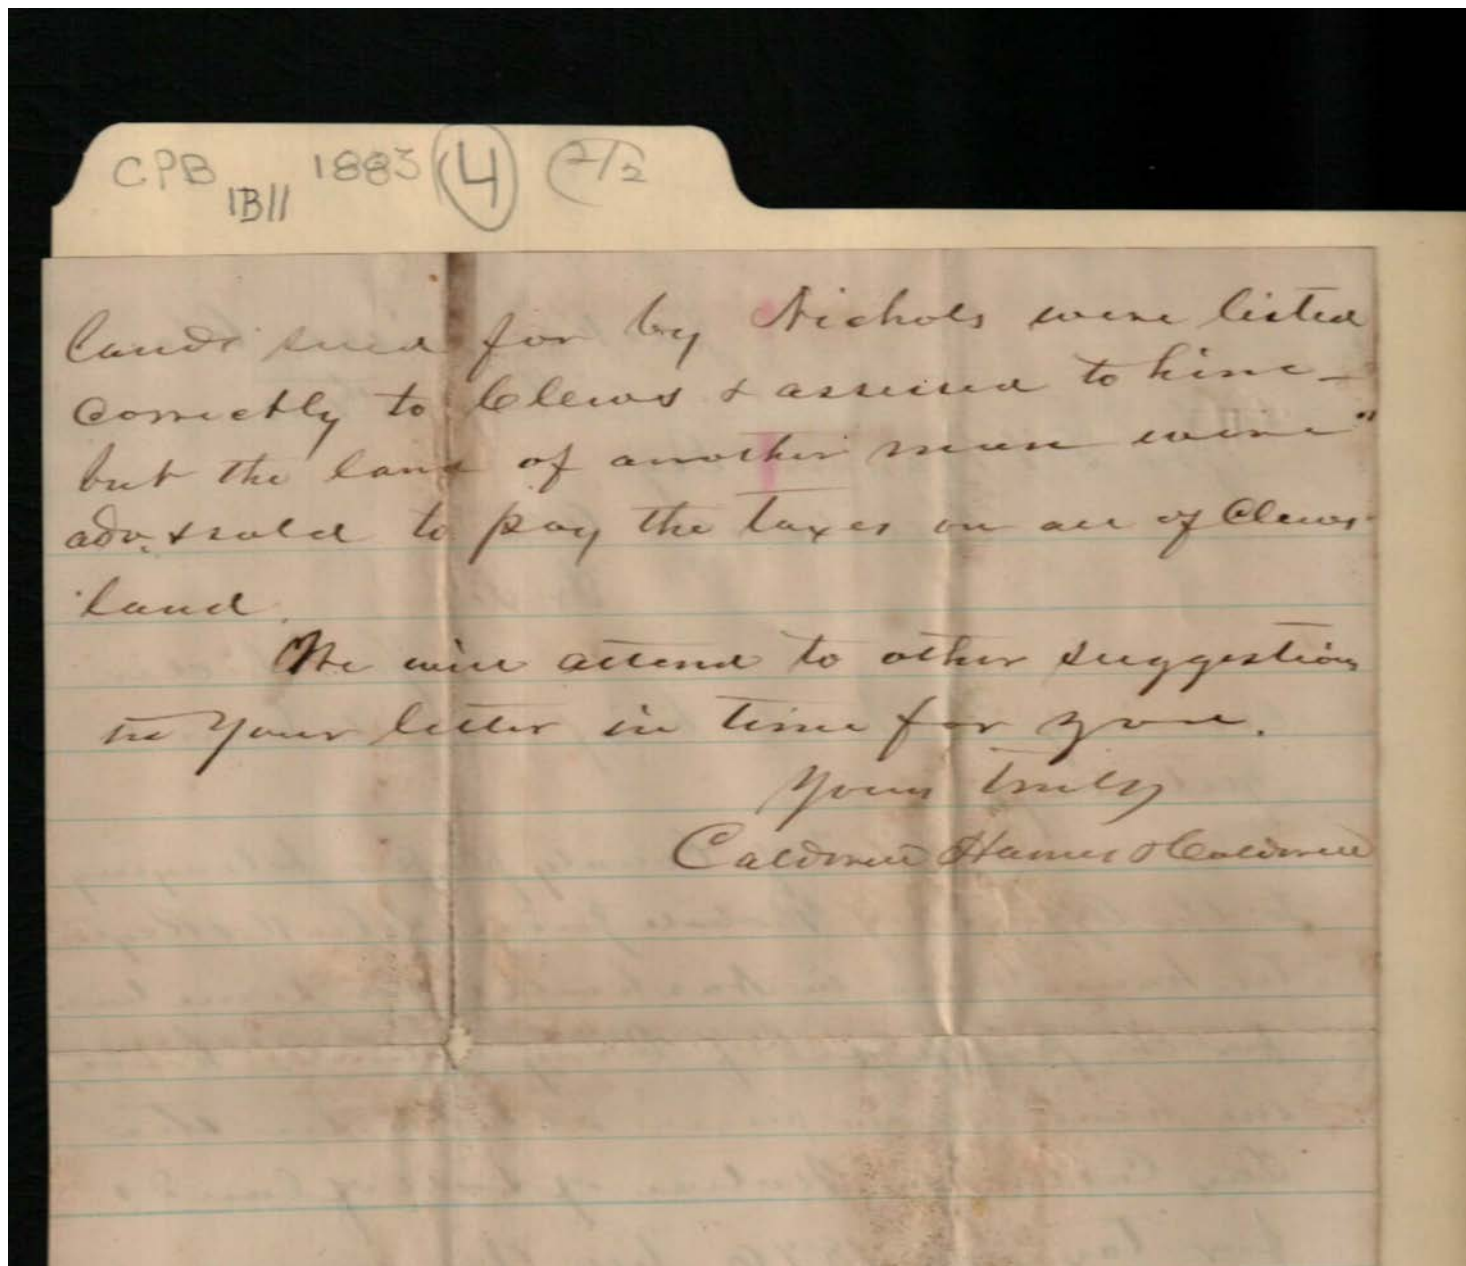 CPB 1883 4 (2/2)
1B11
lands sued for by Nichols were listed
correctly to Clews & assessed to him -
but the land of another man were "
adv. & sold to pay the taxes on all of Clews
land.
We will attend to other suggestions
in your letter in time for you.
Yours truly
Caldwell Hames & Caldwell